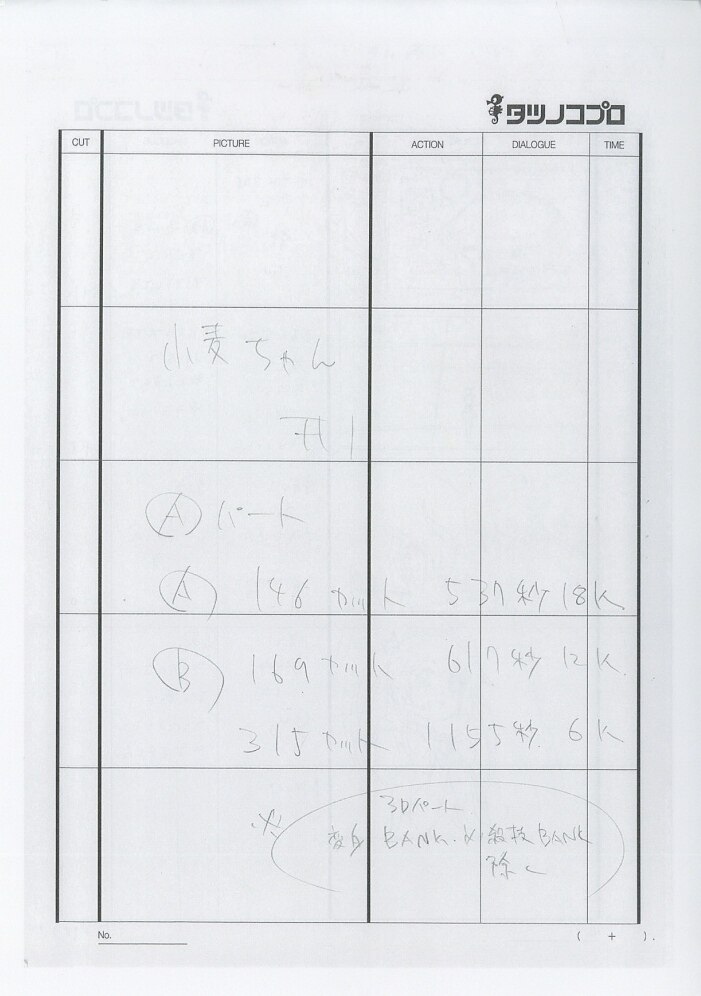 タツノコプロ
CUT PICTURE ACTION DIALOGUE TIME
小麦ちゃん
#1
Ⓐ パート
Ⓐ 146カット 537秒18K
Ⓑ 169カット 617秒12K
315カット 1155秒6K
3Dパート
※ 変身BANK.必殺技BANK
除く
No. ( + ).